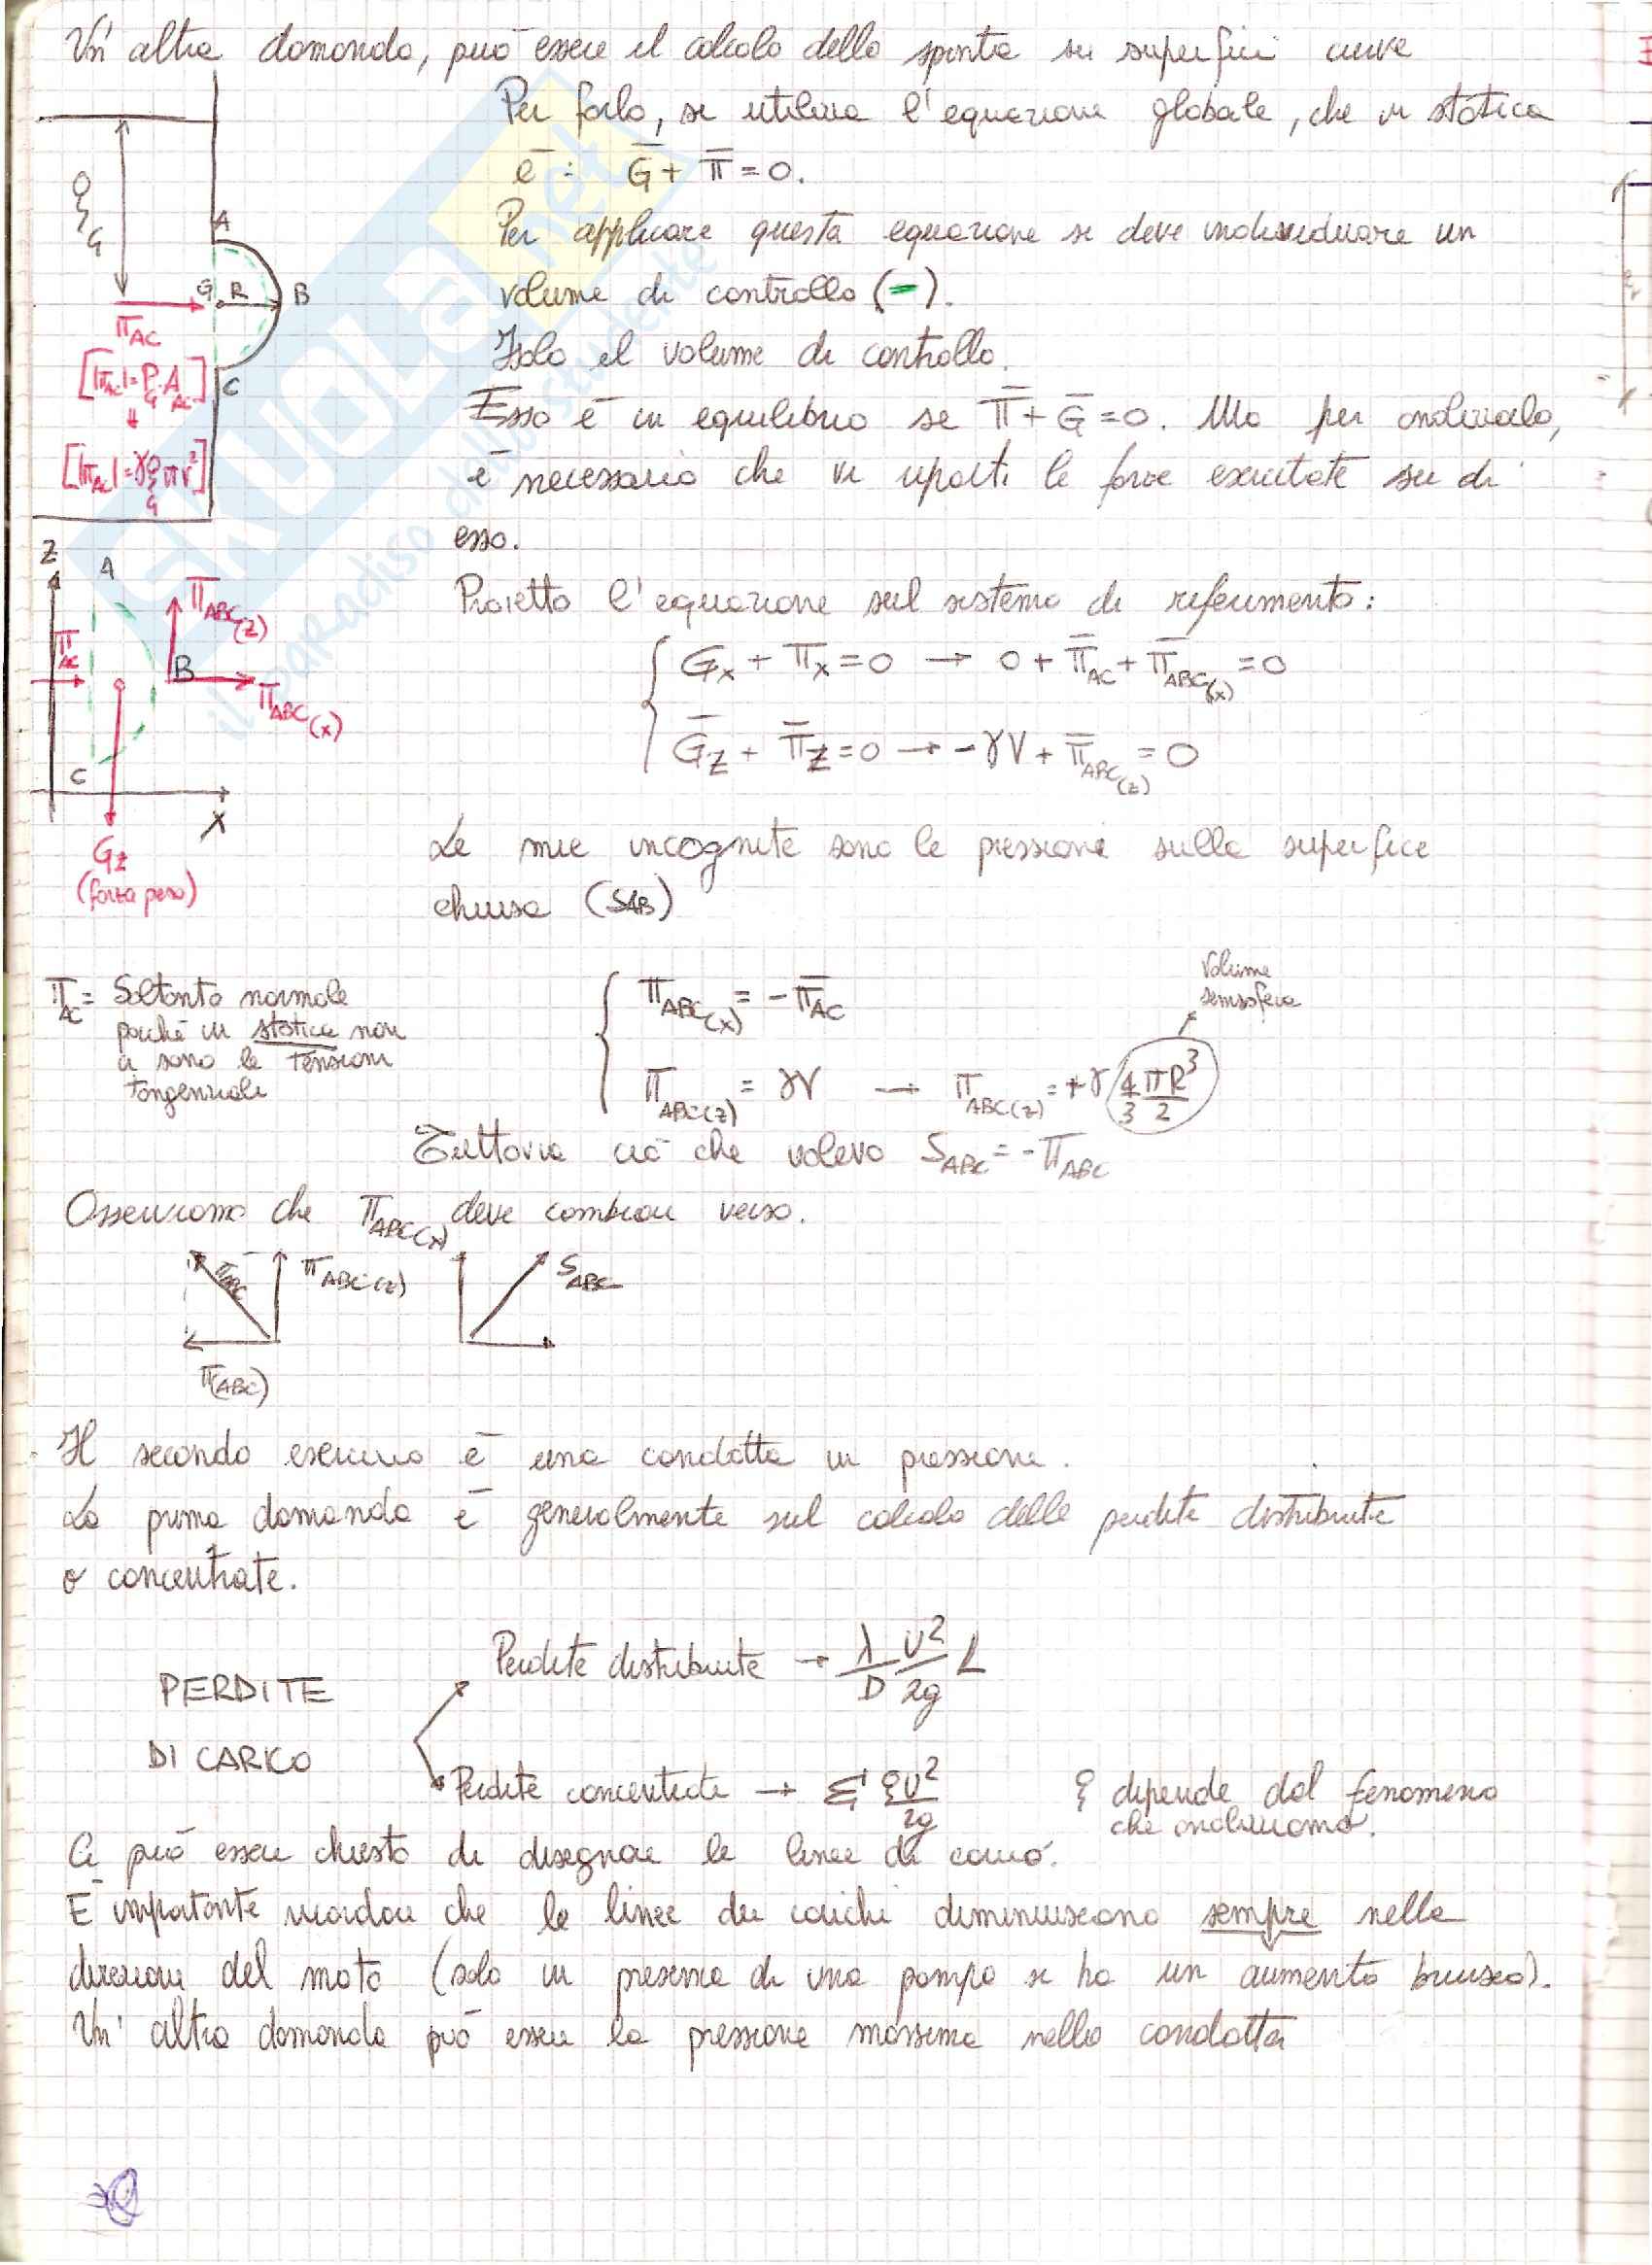 Un'altra domanda, può essere il calcolo della spinta su superfici curve
Per farlo, si utilizza l'equazione globale, che in statica
è: G + Π = 0.
Per applicare questa equazione si deve individuare un
volume di controllo (-).
Isolo il volume di controllo.
Esso è in equilibrio se Π + G = 0. Ma per analizzarlo,
è necessario che vi riporti le forze esercitate su di
esso.
ξG
A
G R B
ΠAC
[|ΠAC| = PG · AAC]
C
[|ΠAC| = γ ξG π r²]
Z
A
ΠABC(z)
ΠAC
B
ΠABC(x)
C
X
Gz
(forza peso)
Proietto l'equazione sul sistema di riferimento:
Gx + Πx = 0 → 0 + ΠAC + ΠABC(x) = 0
Gz + Πz = 0 → -γV + ΠABC(z) = 0
Le mie incognite sono le pressioni sulla superfice
chiusa (SAB)
ΠAC = Soltanto normale
perché in statica non
ci sono le tensioni
tangenziali
ΠABC(x) = -ΠAC
Volume
semisfera
ΠABC(z) = γV → ΠABC(z) = +γ 4/3 πR³/2
Tuttavia ciò che volevo SABC = -ΠABC
Osserviamo che ΠABC(x) deve cambiare verso.
ΠABC
ΠABC(z)
SABC
Π(ABC)
Il secondo esercizio è una condotta in pressione.
La prima domanda è generalmente sul calcolo delle perdite distribuite
o concentrate.
Perdite distribuite → λ/D U²/2g L
PERDITE
DI CARICO
Perdite concentrate → Σ ξ U²/2g
ξ dipende dal fenomeno
che analizziamo.
Ci può essere chiesto di disegnare le linee di carico.
È importante ricordare che le linee dei carichi diminuiscono sempre nella
direzione del moto (solo in presenza di una pompa si ha un aumento brusco).
Un'altra domanda può essere la pressione massima nella condotta